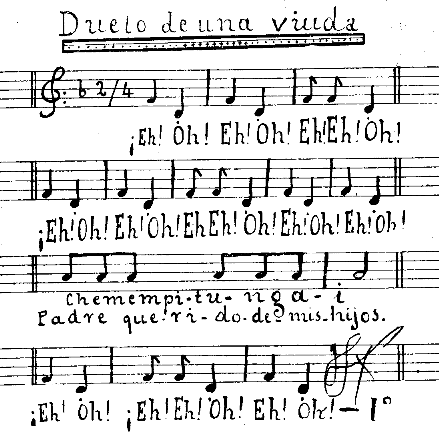 Duelo de una viuda
2/4
¡Eh! Oh! Eh! Oh! Eh! Eh! Oh!
¡Eh! Oh! Eh! Oh! Eh Eh! Oh! Eh! Oh! Eh! Oh!
Chemempi-tu-nga-i
Padre que-ri-do-de mis-hijos.
¡Eh! Oh! ¡Eh! Eh! Oh! Eh! Oh! - 1º